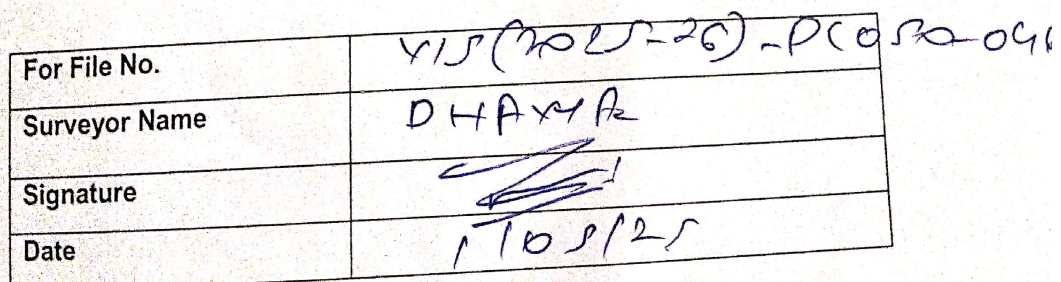 For File No. VIS(2025-26)-PC050-046
Surveyor Name DHAXYA
Signature
Date 1/05/25